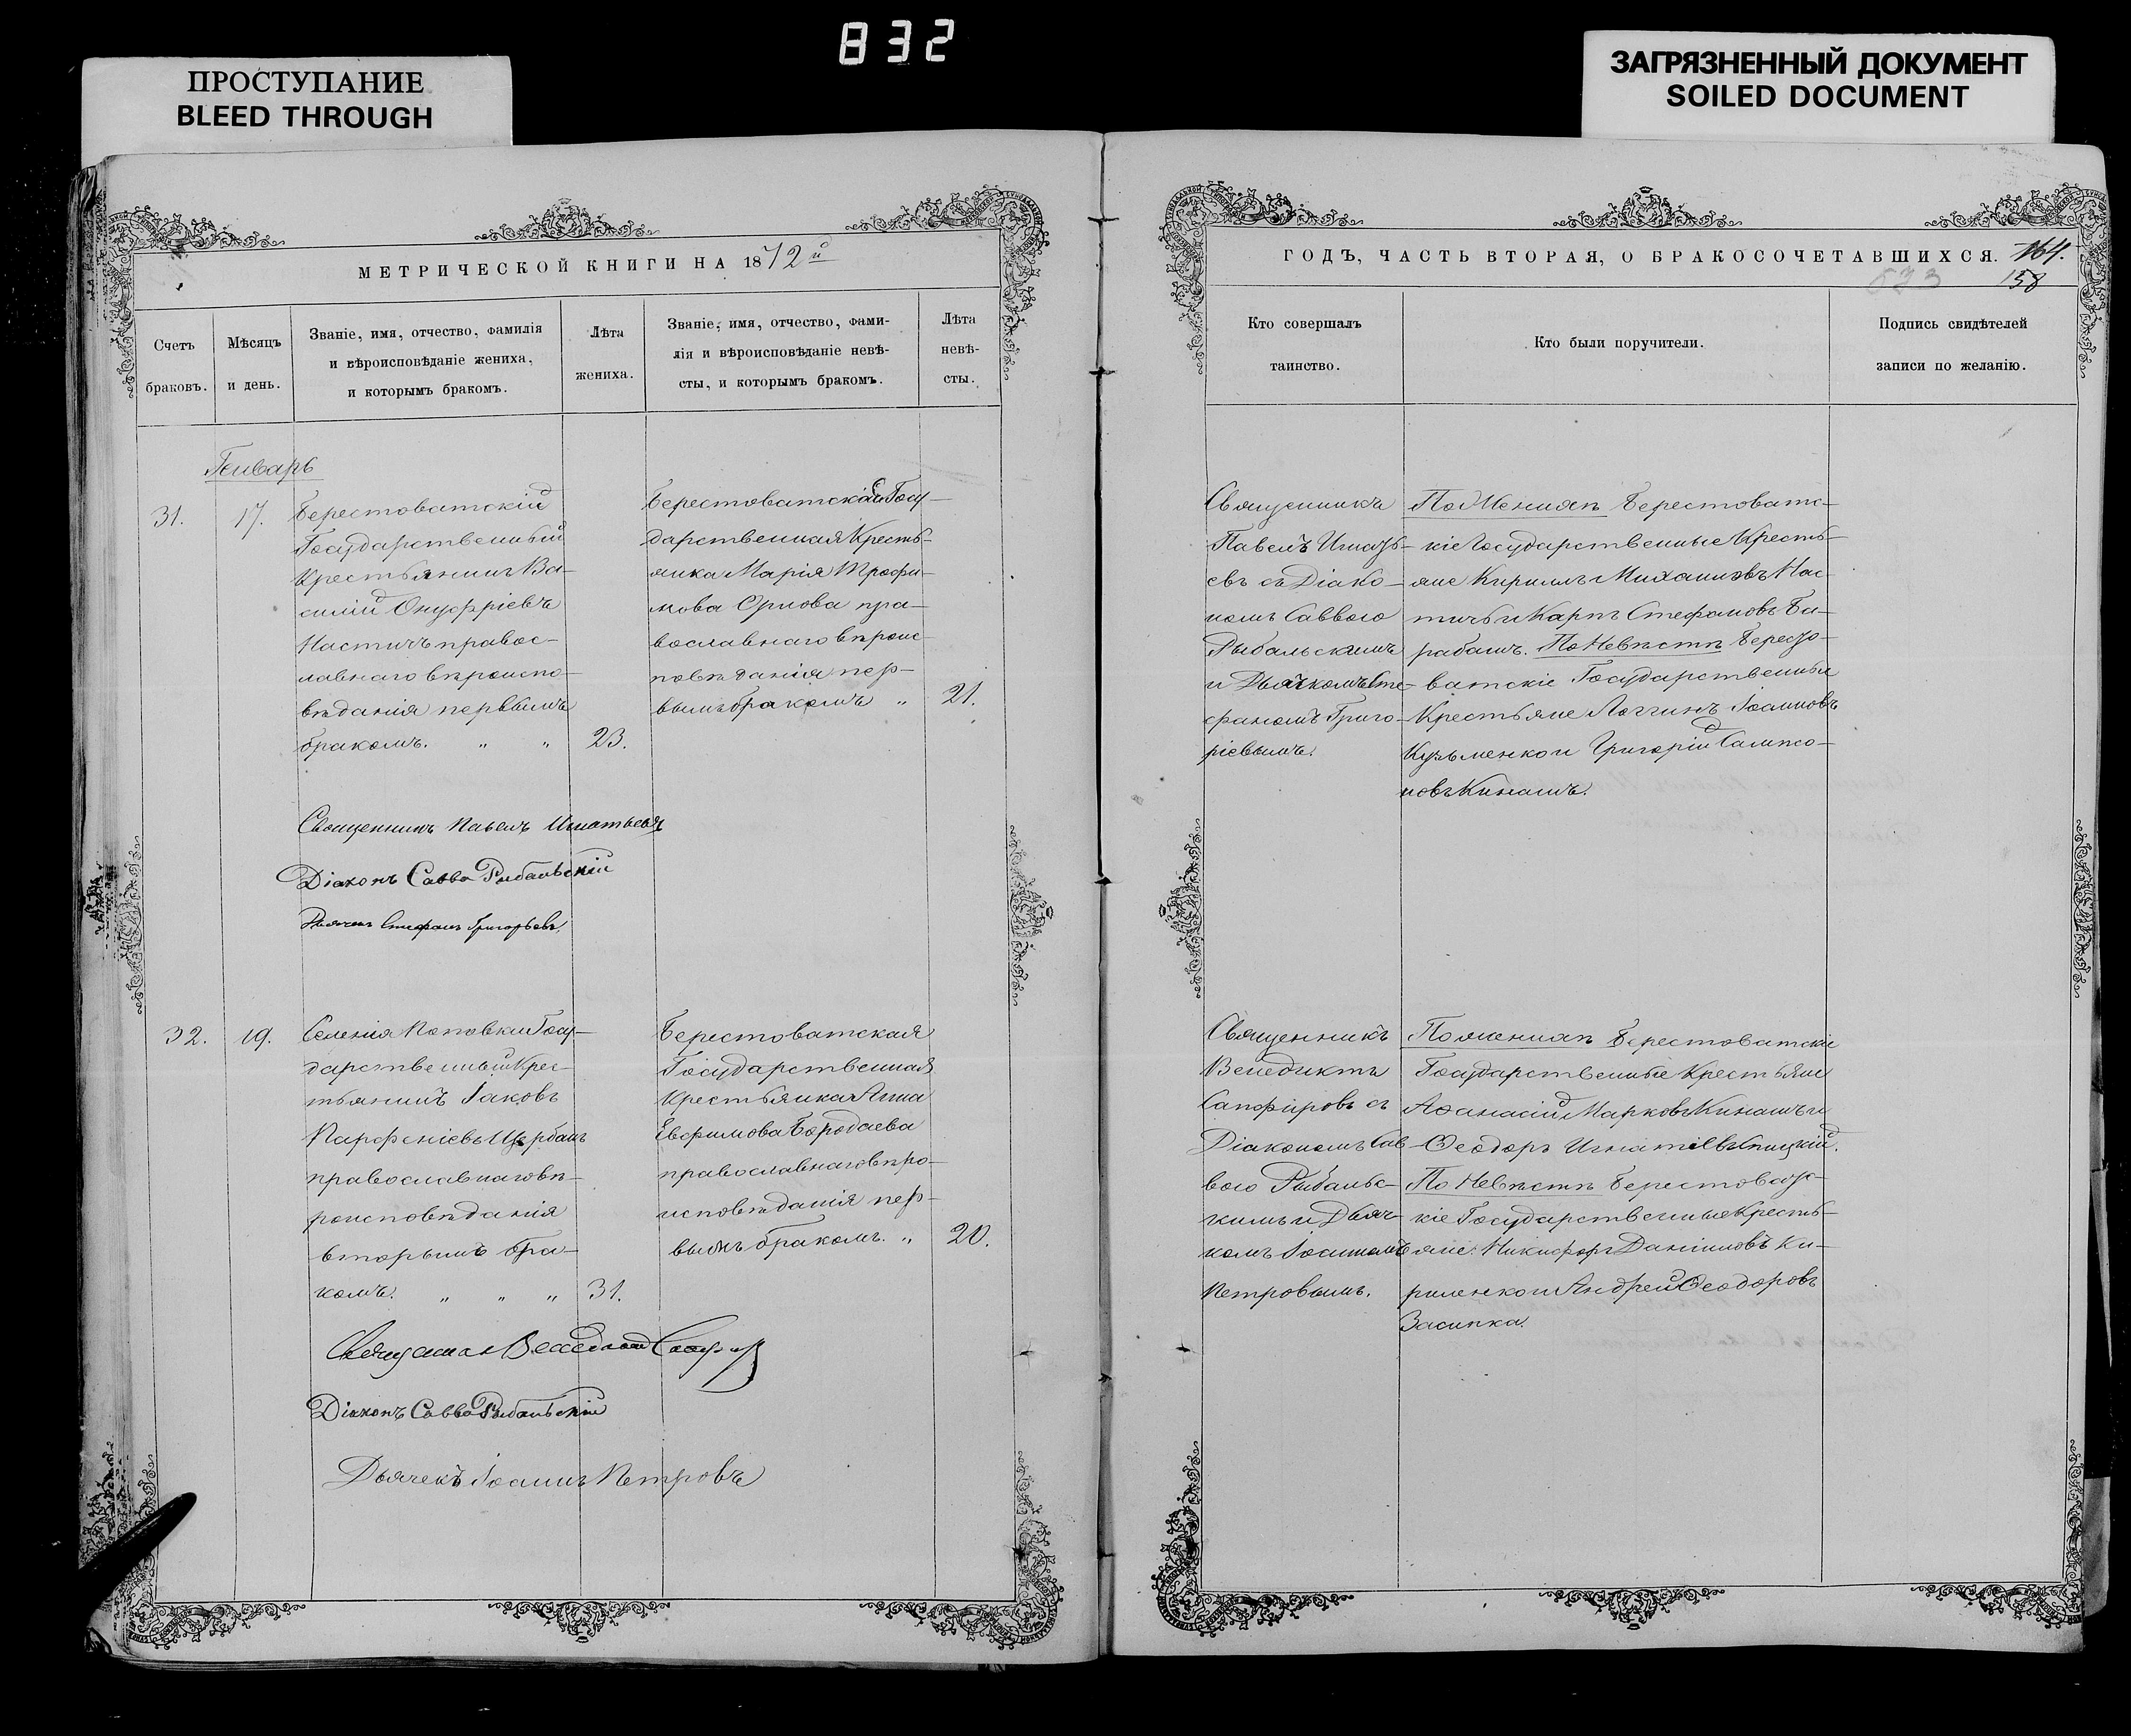 832
ПРОСТУПАНИЕ
BLEED THROUGH
ЗАГРЯЗНЕННЫЙ ДОКУМЕНТ
SOILED DOCUMENT
МЕТРИЧЕСКОЙ КНИГИ НА 1872й
Счетъ
браковъ.
Мѣсяцъ
и день.
Званіе, имя, отчество, фамилія
и вѣроисповѣданіе жениха,
и которымъ бракомъ.
Лѣта
жениха.
Званіе, имя, отчество, фами-
лія и вѣроисповѣданіе невѣ-
сты, и которымъ бракомъ.
Лѣта
невѣ-
сты.
Генварь
31.
17.
Берестоватскій
Государственный
Крестьянинъ Ва-
силій Онуфріевъ
Настичъ правос-
лавнаго вѣроиспо-
вѣданія первымъ
бракомъ. " "
23.
Берестоватская Госу-
дарственная Кресть-
янка Марія Трофи-
мова Орлова пра-
вославнаго вѣроис-
повѣданія пер-
вымъ бракомъ "
21.
Священникъ Павелъ Игнатьевъ
Діаконъ Савва Рыбальскій
Дьячекъ Стефанъ Григорьевъ.
32.
19.
Селенія Поповки Госу-
дарственный Крес-
тьянинъ Іаковъ
Парфеніевъ Щербань
православнаго вѣ-
роисповѣданія
вторымъ бра-
комъ. " " "
31.
Берестоватская
Государственная
Крестьянка Анна
Евфимова Бородаева
православнаго вѣро-
исповѣданія пер-
вымъ бракомъ. "
20.
Священник Венедикт Сапфиров
Діаконъ Савва Рыбальскій
Дьячекъ Іоаннъ Петровъ
ГОДЪ, ЧАСТЬ ВТОРАЯ, О БРАКОСОЧЕТАВШИХСЯ. 164.
573
158
Кто совершалъ
таинство.
Кто были поручители.
Подпись свидѣтелей
записи по желанію.
Священникъ
Павелъ Игнать-
евъ съ Діако-
номъ Саввою
Рыбальскимъ
и Дьячкомъ Сте-
фаномъ Григо-
ріевымъ.
По Женихѣ Берестоватс-
кіе Государственные Кресть-
яне Кириллъ Михаиловъ Нас-
тичъ и Карпъ Стефановъ Ба-
рабашъ. По Невѣстѣ Бересто-
ватскіе Государственныя
Крестьяне Логгинъ Іоанновъ
Кузьменко и Григорій Сампсо-
новъ Кинашъ.
Священникъ
Венедиктъ
Сапфировъ съ
Діакономъ Сав-
вою Рыбальс-
кимъ и Дьяч-
комъ Іоанномъ
Петровымъ.
По женихѣ Берестоватскіе
Государственные Крестьяне
Афанасій Марковъ Кинашъ и
Ѳеодоръ Игнатіевъ Спицкій.
По Невѣстѣ Берестоватс-
кіе Государственные Кресть-
яне: Никифоръ Даніиловъ Ки-
риленко и Андрей Ѳеодоровъ
Засипка.